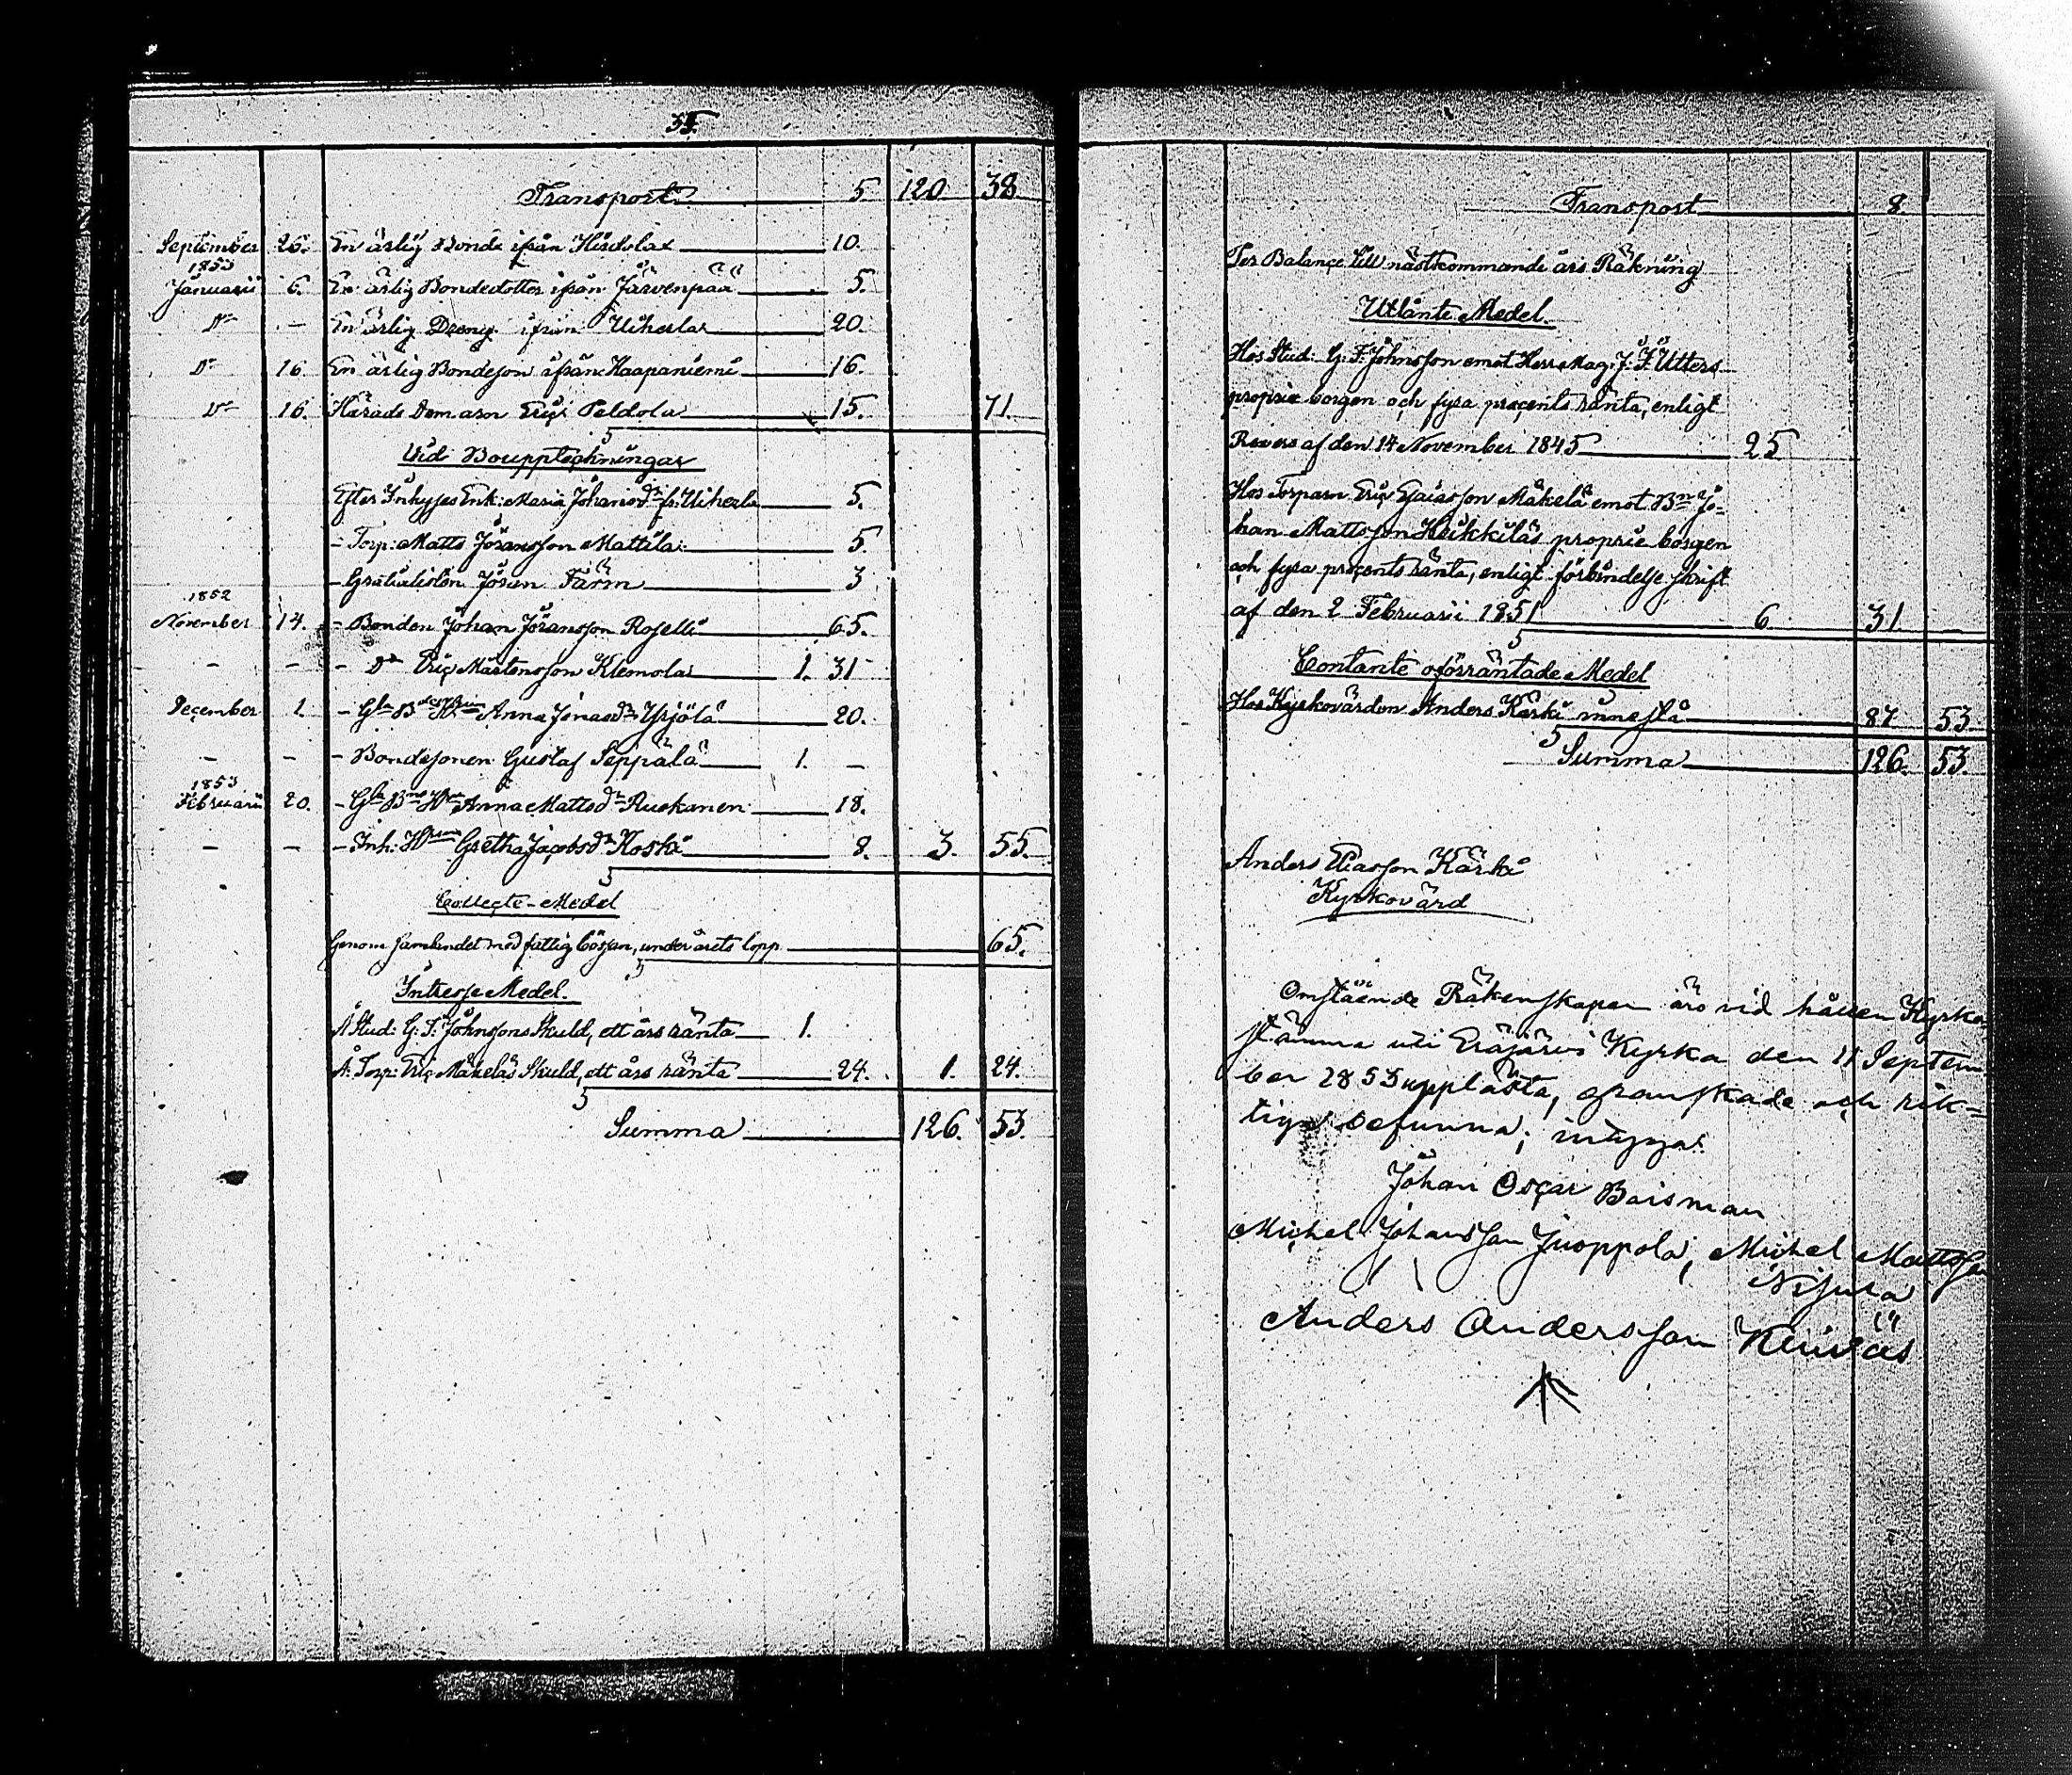 35.
Transport 5. 120 38.
September 26. En ärlig Bonde ifrån Hirdola 10.
1853
Januarii 6. En ärlig Bondedotter ifrån Järvenpää 5.
Do — En ärlig Dreng ifrån Uiherla 20.
Do 16. En ärlig Bondeson ifrån Haapaniemi 16.
Do 16. Härads Domarn Eric Peldola 15. 71.
Vid Bouppteckningar
Efter Inhyses Enk: Maria Johansdr fr: Uiherla 5.
- Torp: Matts Jöransson Mattila 5.
- Gratialisten Jöran Färm 3
1852
November 14. - Bonden Johan Jöransson Roselli 65.
- - - Do Eric Mårtensson Klemola 1. 31
December 1. - Gla Anna Jonasdr Yrjölä 20.
- - - Bondesonen Gustaf Seppälä 1. -
1853
Februarii 20. - Gla Anna Mattsdr Ruokanen 18.
- - - Inh: Gretha Jacobsdr Koski 8. 3. 55.
Collecte-Medel
Genom samlandet med fattig bössan, under årets lopp 65.
Intresse Medel.
Å Stud: G: F: Johnssons Skuld, ett års ränta 1.
Å Torp: Eric Mäkeläs Skuld, ett års ränta 24. 1. 24.
Summa 126. 53.
Transport 8.
Per Balance till nästkommande års Räkning
Utlånte Medel.
Hos Stud: G: F: Johnsson emot Herr Mag: J: F: Utters
proprie borgen och fyra procents ränta, enligt
Revers af den 14 November 1845 25
Hos Torparn Eric Esaiasson Mäkelä emot Bn Jo-
han Mattsson Heikkiläs proprie borgen
och fyra procents ränta, enligt förbindelse skrift
af den 2 Februarii 1851 6 31 -
Contante oförräntade Medel
Hos Kyrkovärden Anders Kärki innestå 87 53
Summa 126. 53.
Anders Eliasson Kärki
Kyrkovärd
Omstående Räkenskaper äro vid hållen Kyrko
stämma uti Eräjärvi Kyrka den 11 Septem
ber 1853 upplästa, granskade och rik=
tiga befunna; intyga:
Johan Oscar Boisman
Michel Johansson Juoppola, Michel Mattsson
Anders Andersson Keiväs